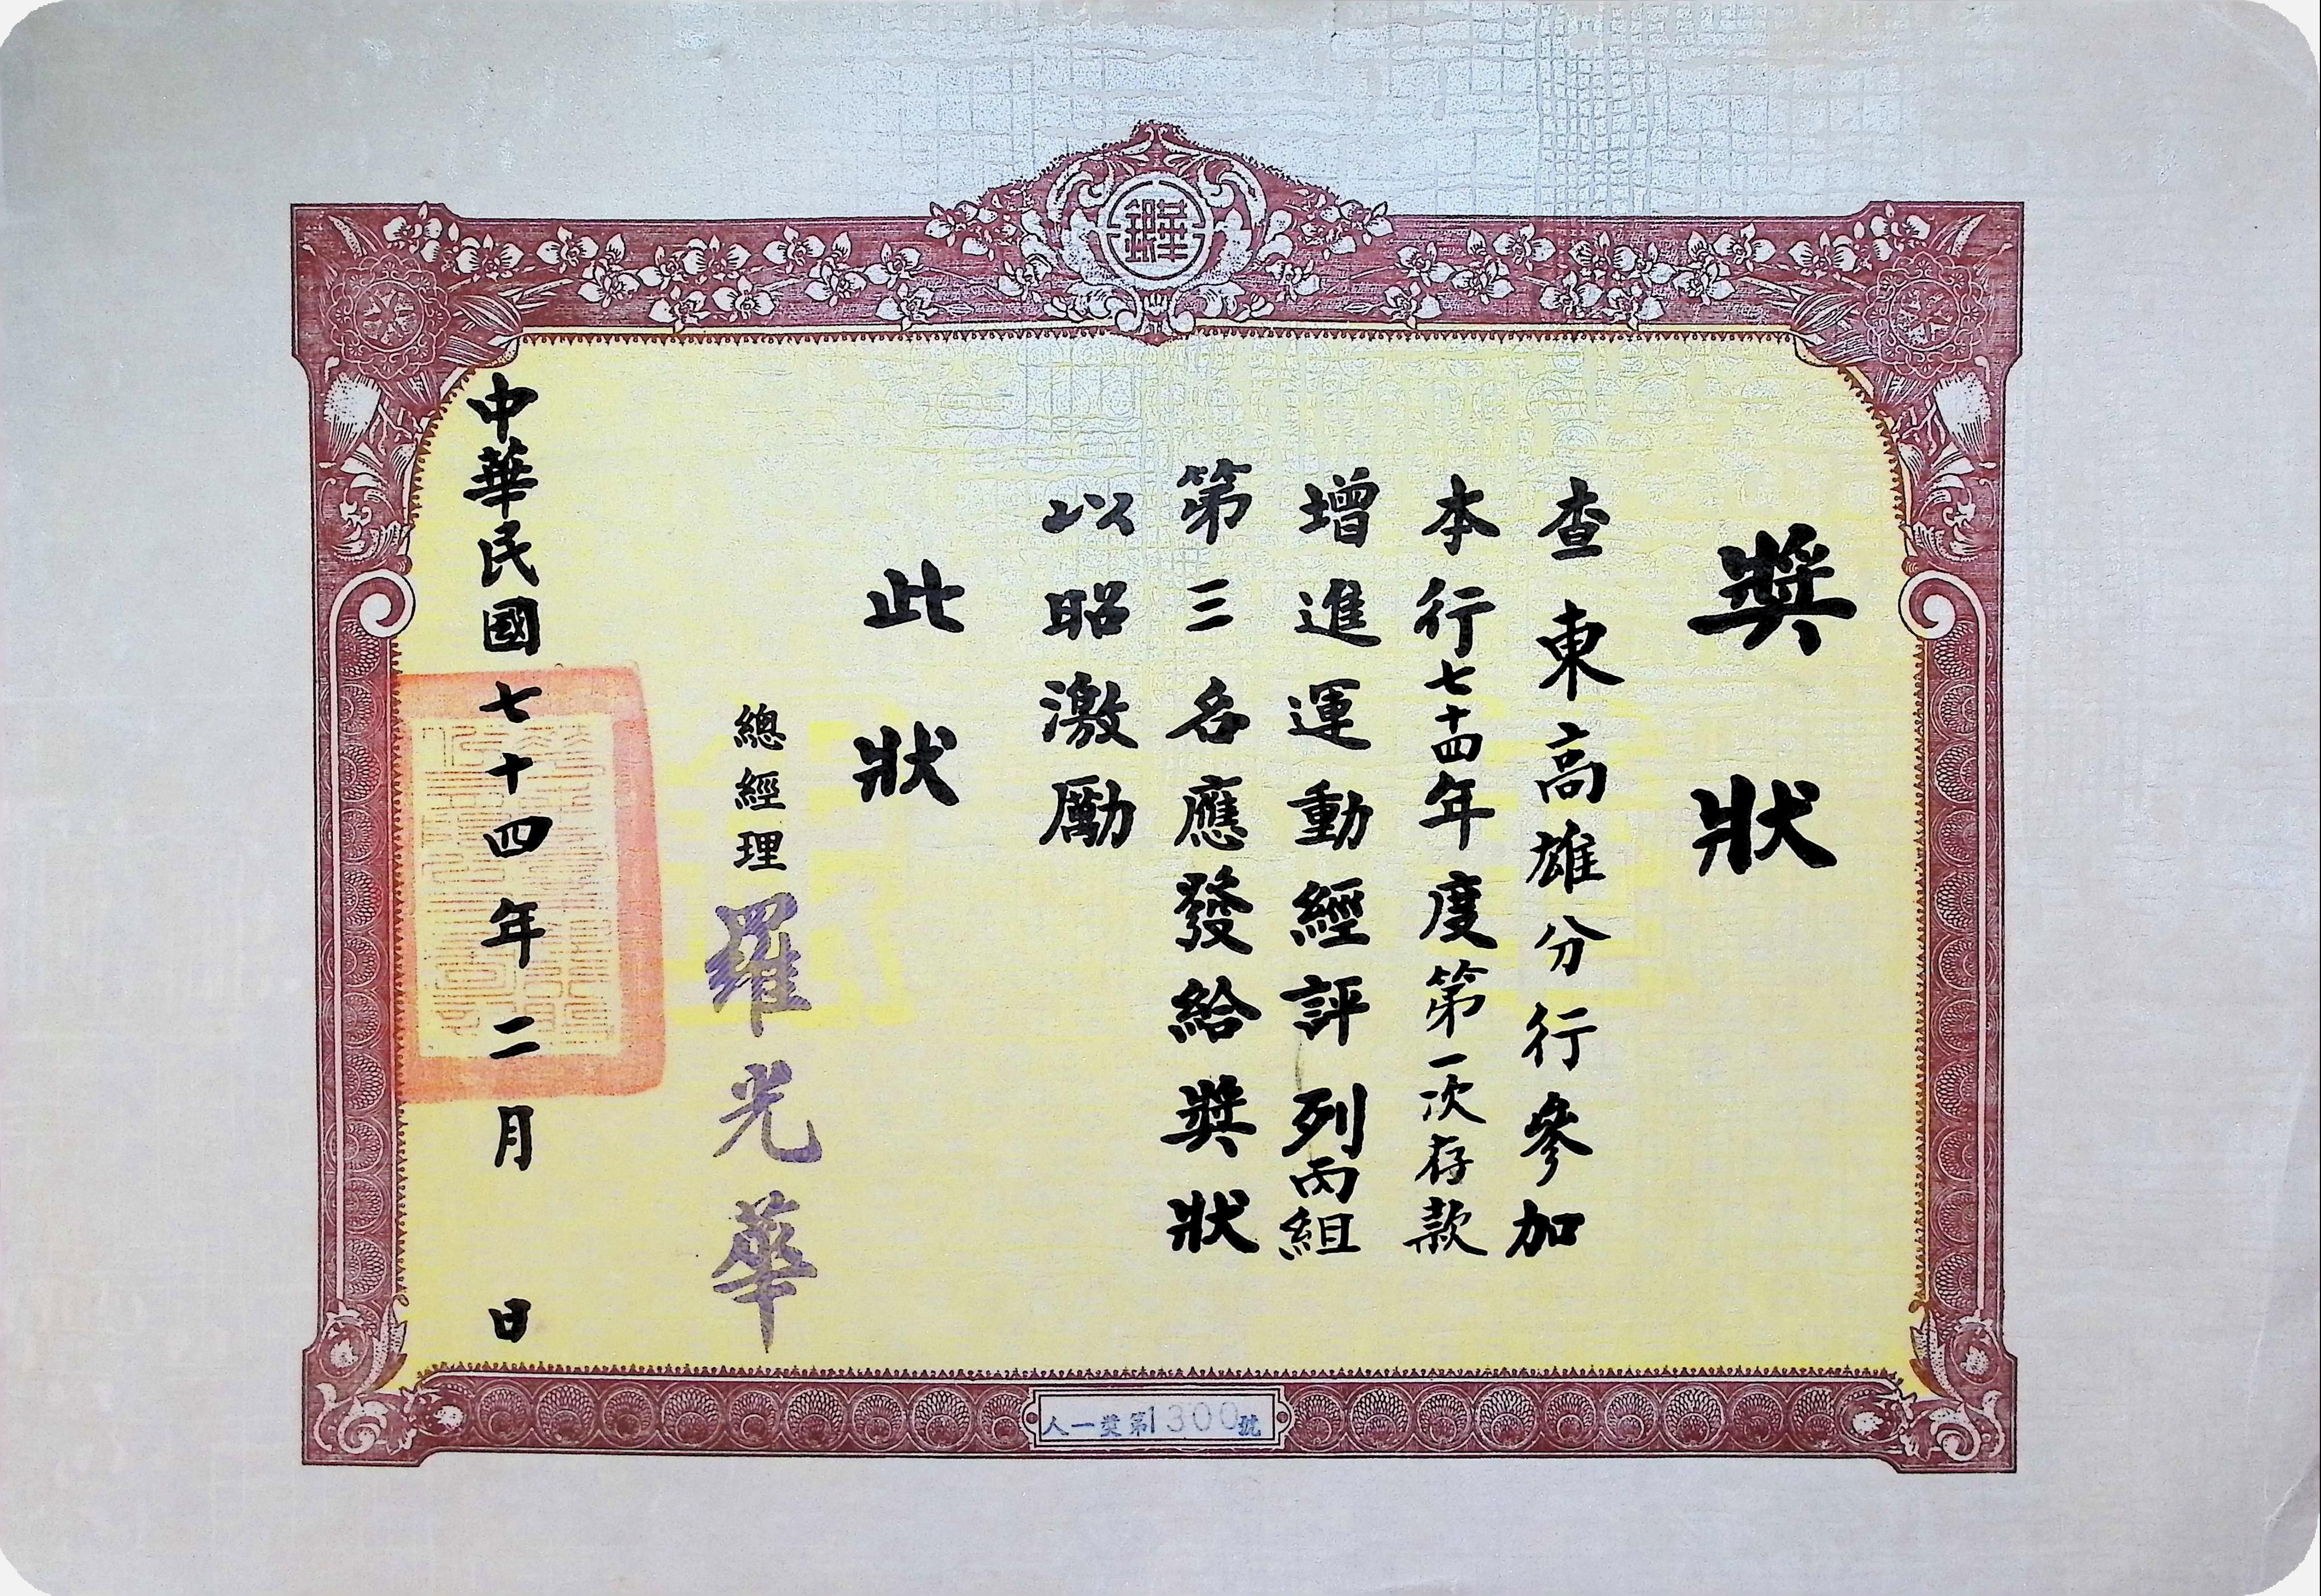 獎狀
查東高雄分行參加
本行七十四年度第一次存款
增進運動經評列丙組
第三名應發給獎狀
以昭激勵
此狀
總經理 羅光華
中華民國七十四年二月 日
人一獎第1300號